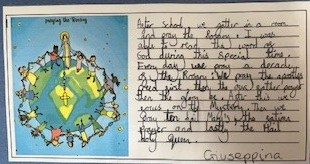 praying the Rosary
After school we gather in a room
and pray the Rosary. I was
able to Read the word of
God during this special time.
Every day we pray a decade
of the Rosary. We pray the apostls
creed first then the our father prayer
then the glory be. After we
focus on the Mystery. Then we
pray ten hail Mary's, the fatima
prayer and lastly the Hail
Holy Queen.
Giuseppina